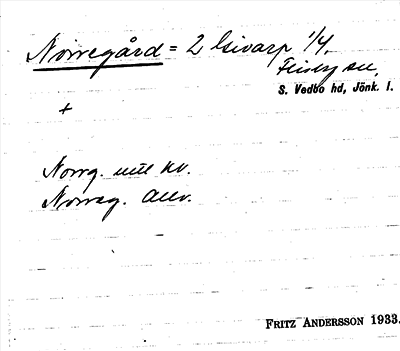 Norregård = 2 Isivarp 1/4.
Flisby sn,
S. Vedbo hd, Jönk. l.
+
Norrg. utt kv.
Norreg. allv.
FRITZ ANDERSSON 1933.